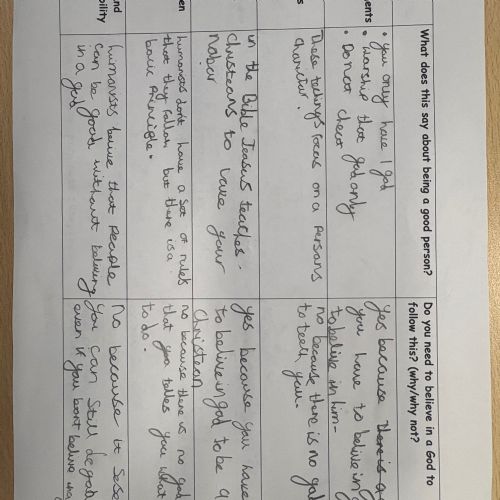 ments
What does this say about being a good person?
Do you need to believe in a God to
follow this? (why/why not?
• You only have 1 god
• Worship that god only
• Do not cheat
yes because there is a
you have to belive in g
to belive in him-
s
These teachings focus on a persons
charictur.
no because there is no god
to teell you-
in the Bible Jeasus teaches.
christeans to love your
nabur
yes because you have
to belive in god to be a
Christean
en
humanists don't have a set of rules
that they follah but there is a
basic principle.
no because there is no god
that you talles you what
to do.
and
bility
humanists belive that People
can be good without beliving
in a god
no because it sese
you can still be good
even if you don't belive in g